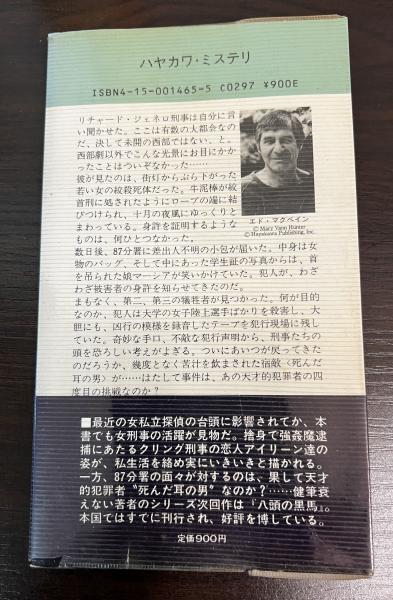 ハヤカワ・ミステリ
ISBN4-15-001465-5 C0297 ¥900E
リチャード・ジェネロ刑事は自分に言
い聞かせた。ここは有数の大都会なの
だ、決して未開の西部ではない、と。
西部劇以外でこんな光景にお目にかか
ったことはついぞなかった……
彼が見たのは、街灯からぶら下がった
若い女の絞殺死体だった。牛泥棒が絞
首刑に処されたようにロープの端に結
びつけられ、十月の夜風にゆっくりと
まわっている。身許を証明するような
ものは、何ひとつなかった。
エド・マクベイン
© Mary Vann Hunter
© Hayakawa Publishing, Inc.
数日後、87分署に差出人不明の小包が届いた。中身は女
物のバッグ、そして中にあった学生証の写真からは、首
を吊られた娘マーシアが笑いかけていた。犯人が、わざ
わざ被害者の身許を知らせてきたのだ。
まもなく、第二、第三の犠牲者が見つかった。何が目的
なのか、犯人は大学の女子陸上選手ばかりを殺害し、大
胆にも、凶行の模様を録音したテープを犯行現場に残し
ていた。奇妙な手口、不敵な犯行声明から、刑事たちの
頭を恐ろしい考えがよぎる。ついにあいつが戻ってきた
のだろうか、幾度となく苦汁を飲まされた宿敵〈死んだ
耳の男〉が……はたして事件は、あの天才的犯罪者の四
度目の挑戦なのか？
■最近の女私立探偵の台頭に影響されてか、本
書でも女刑事の活躍が見物だ。捨身で強姦魔逮
捕にあたるクリング刑事の恋人アイリーン達の
姿が、私生活を絡め実にいきいきと描かれる。
一方、87分署の面々が対するのは、果して天才
的犯罪者〝死んだ耳の男〟なのか？……健筆衰
えない著者のシリーズ次回作は『八頭の黒馬』。
本国ではすでに刊行され、好評を博している。
定価900円